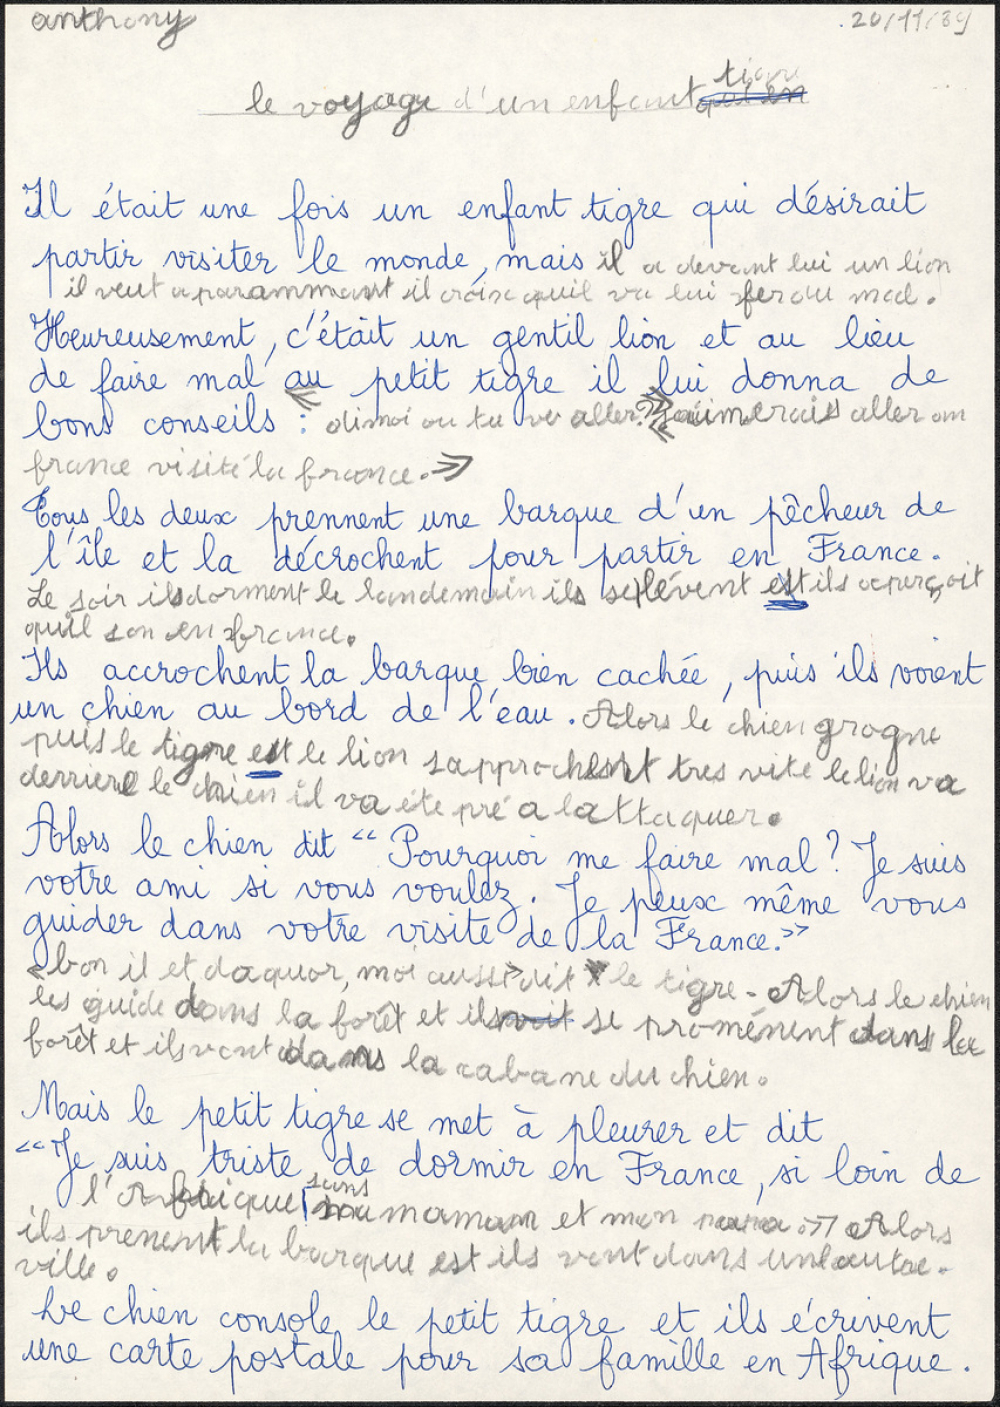 anthony 20/11/89
le voyage d'un enfant tigre
Il était une fois un enfant tigre qui désirait
partir visiter le monde, mais il a devant lui un lion
il veut aparammant il croix quil va lui fer du mal.
Heureusement, c'était un gentil lion et au lieu
de faire mal au petit tigre il lui donna de
bons conseils : « dimoi ou tu ve aller? » « jaimerais aller an
france visité la france. »
Tous les deux prennent une barque d'un pêcheur de
l'île et la décrochent pour partir en France.
Le soir ils dorment le landemain ils se lévent et ils aperçoit
quil son en france.
Ils accrochent la barque bien cachée, puis ils voient
un chien au bord de l'eau. Alors le chien grogne
puis le tigre et le lion sapprochent tres vite le lion va
derriere le chien il va éte pré a lattaquer.
Alors le chien dit “ Pourquoi me faire mal? Je suis
votre ami si vous voulez. Je peux même vous
guider dans votre visite de la France.”
« bon il et daquor, moi aussi » dit le tigre. Alors le chien
les guide dans la forêt et ils se promènent dans la
forêt et ils vont dans la cabane du chien.
Mais le petit tigre se met à pleurer et dit
“Je suis triste de dormir en France, si loin de
l'Afrique sans ma maman et mon papa.” Alors
ils prenent la barque est ils vont dans une autre
ville.
Le chien console le petit tigre et ils écrivent
une carte postale pour sa famille en Afrique.